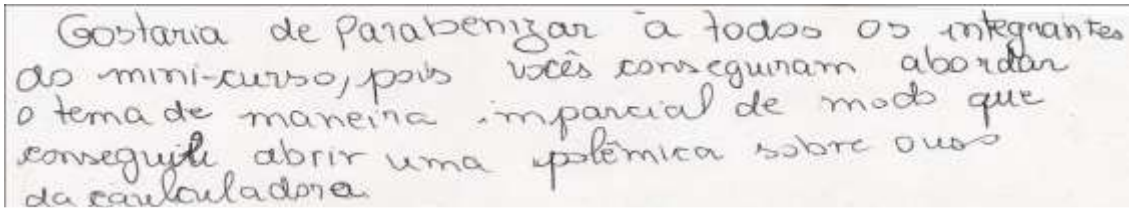 Gostaria de Parabenizar à todos os integrantes
do mini-curso, pois vocês conseguiram abordar
o tema de maneira imparcial de modo que
abrir uma polêmica sobre o uso
da caulculadora.